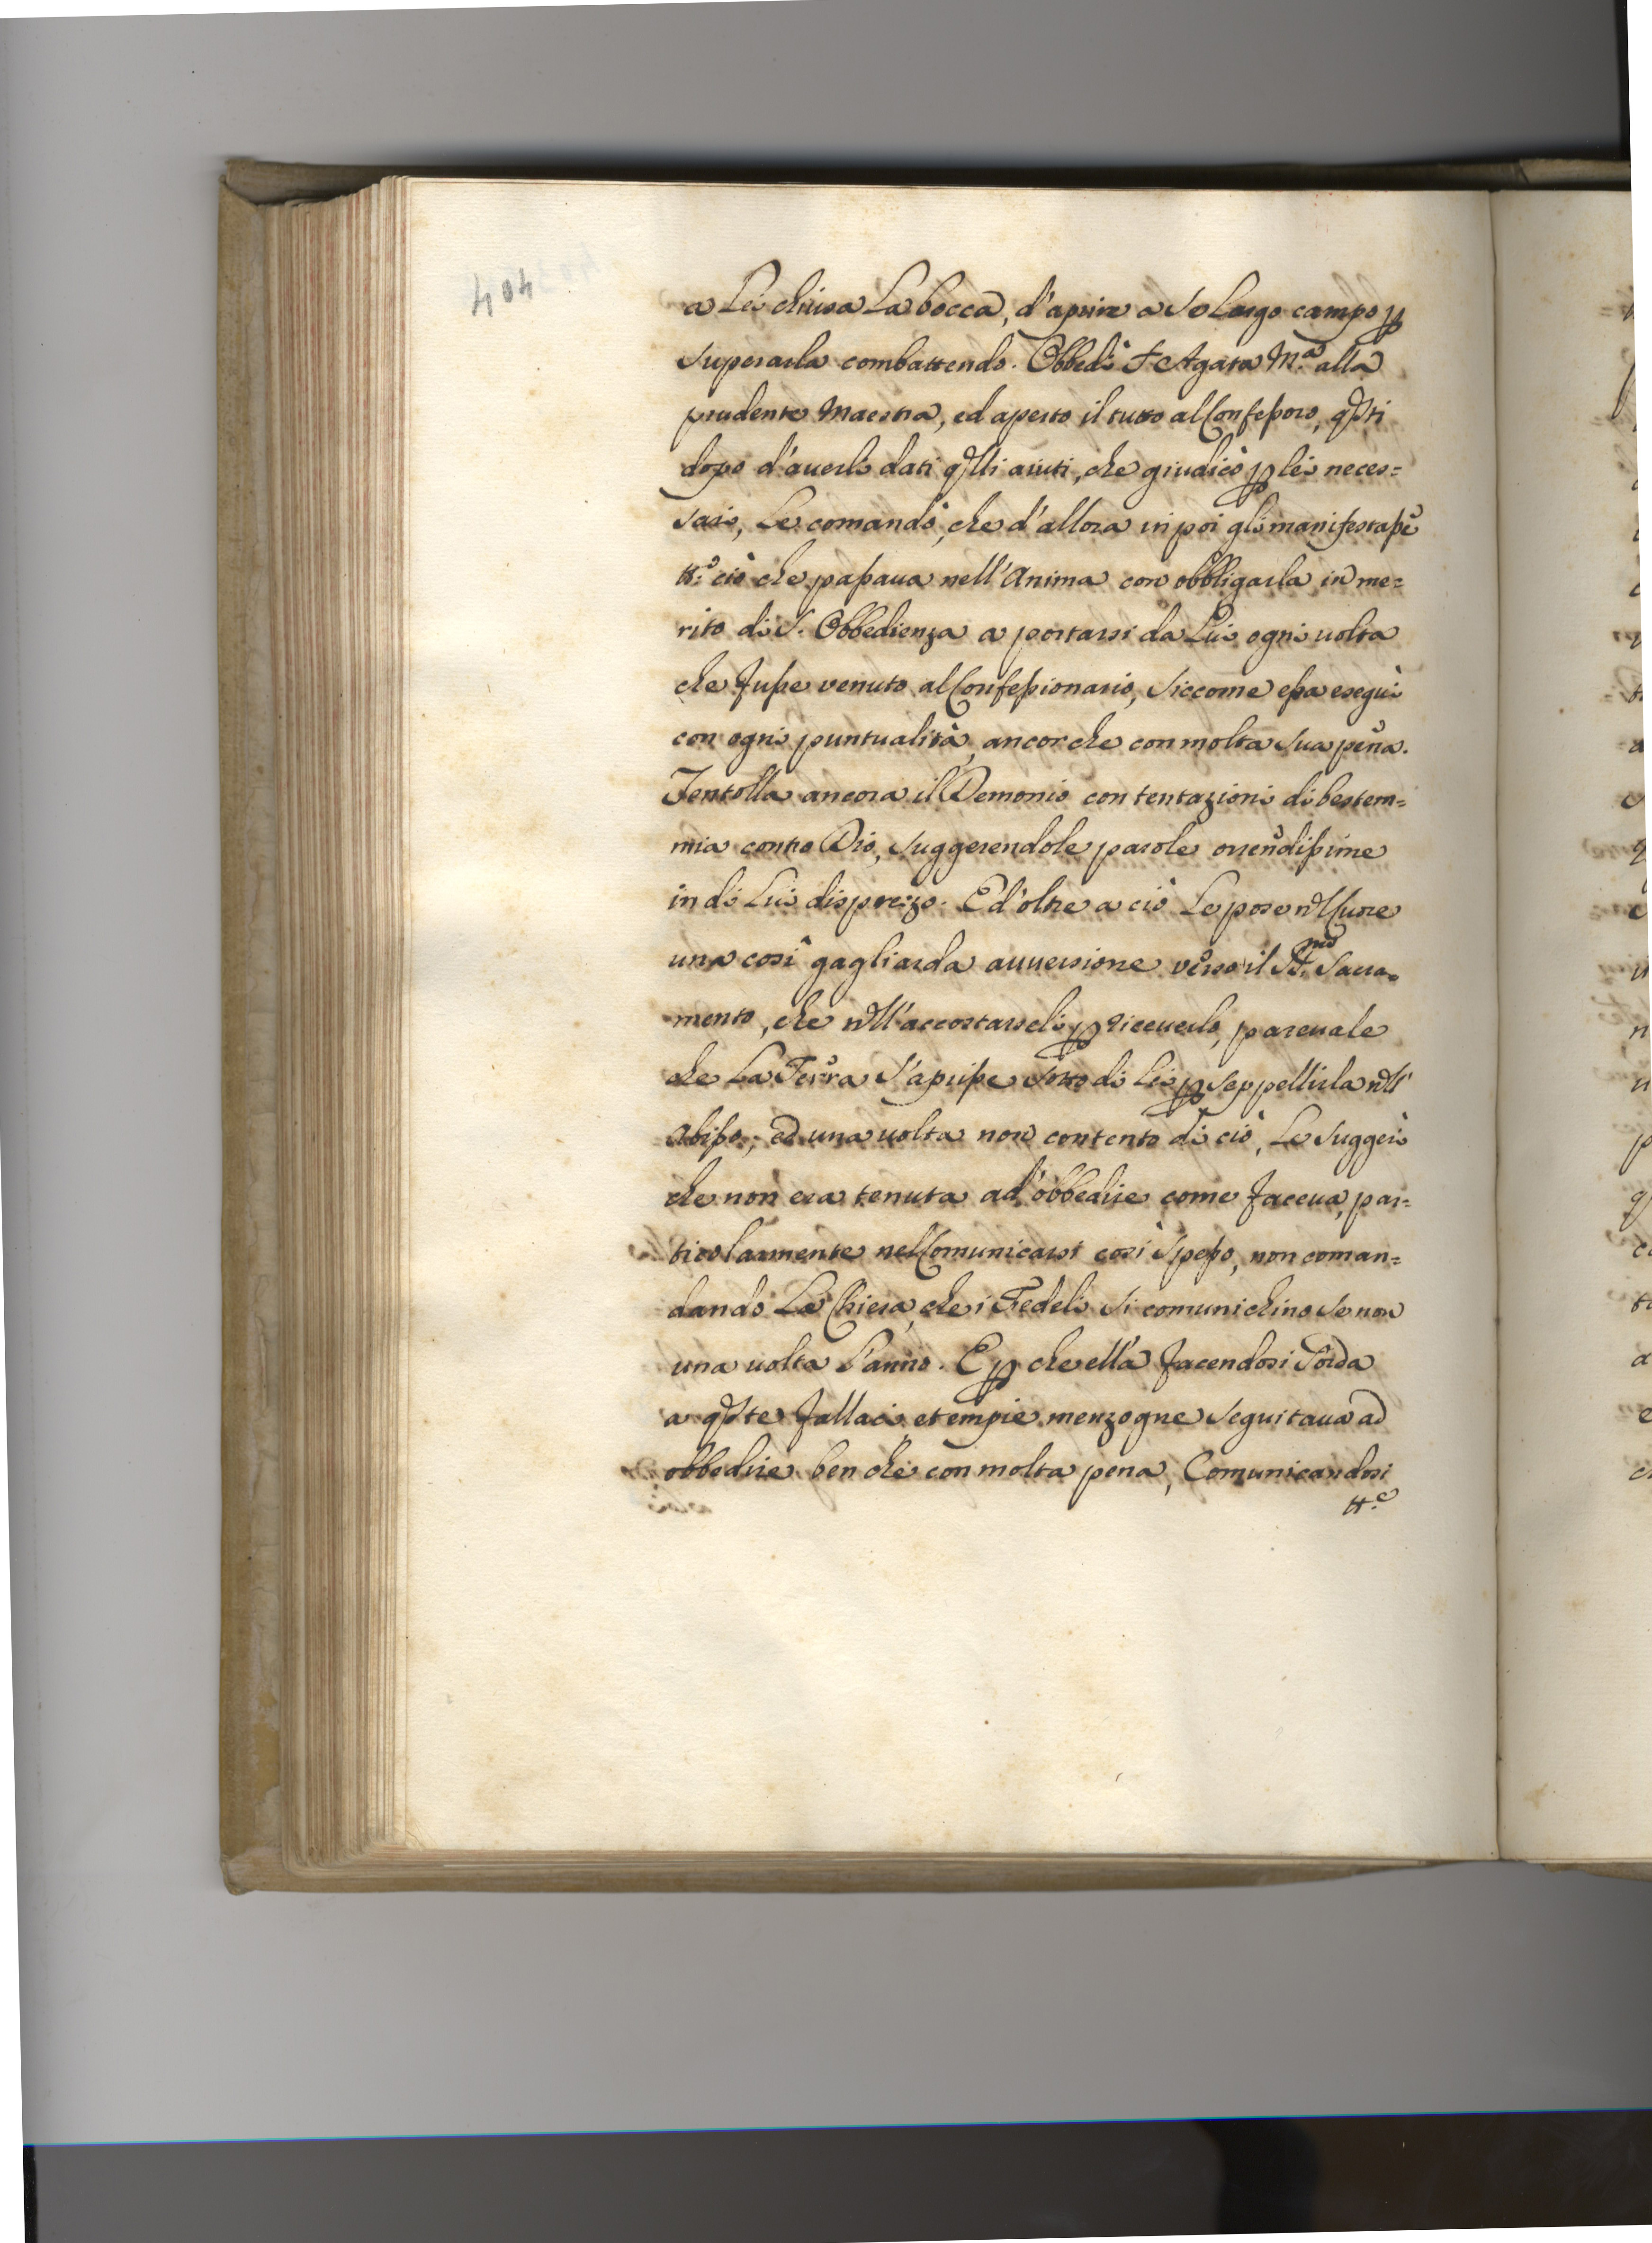 404
a Lei chiusa La bocca, d'aprire a se Largo campo p
superarla combattendo. Obbedì S. Agata M.ª alla
prudente Maestra, ed aperto il tutto al Confessoro, qsti
dopo d'auerle dati qlli aiuti, che giudicò p lei neces=
sari, Le comandò, che d'allora in poi gli manifestasse
tt.º ciò che passaua nell'Anima con obbligarla in me=
rito di S. Obbedienza a portarsi da Lui ogni uolta
che fusse venuto al Confessionario, siccome essa eseguì
con ogni puntualità, ancor che con molta sua pena.
Tentolla ancora il Demonio con tentazioni di bestem=
mia contro Dio, suggerendole parole orrendissime
in di Lui disprezzo. Ed'oltre a ciò Le pose nel Cuore
una così gagliarda auuersione verso il SS.mo Sacra=
mento, che nell'accostarseli p riceuerlo, pareuale
che La Terra s'aprisse sotto di Lei p seppellirla nell'
Abisso; ed una uolta non contento di ciò, Le suggerì
che non era tenuta ad'obbedire come faceua, par=
ticolarmente nel Comunicarsi così spesso, non coman=
dando La Chiesa, che i Fedeli si comunichino se non
una uolta L'anno. E p che ella facendosi Sorda
a qste fallaci et empie menzogne seguitaua ad
obbedire ben che con molta pena, Comunicandosi
tt.e